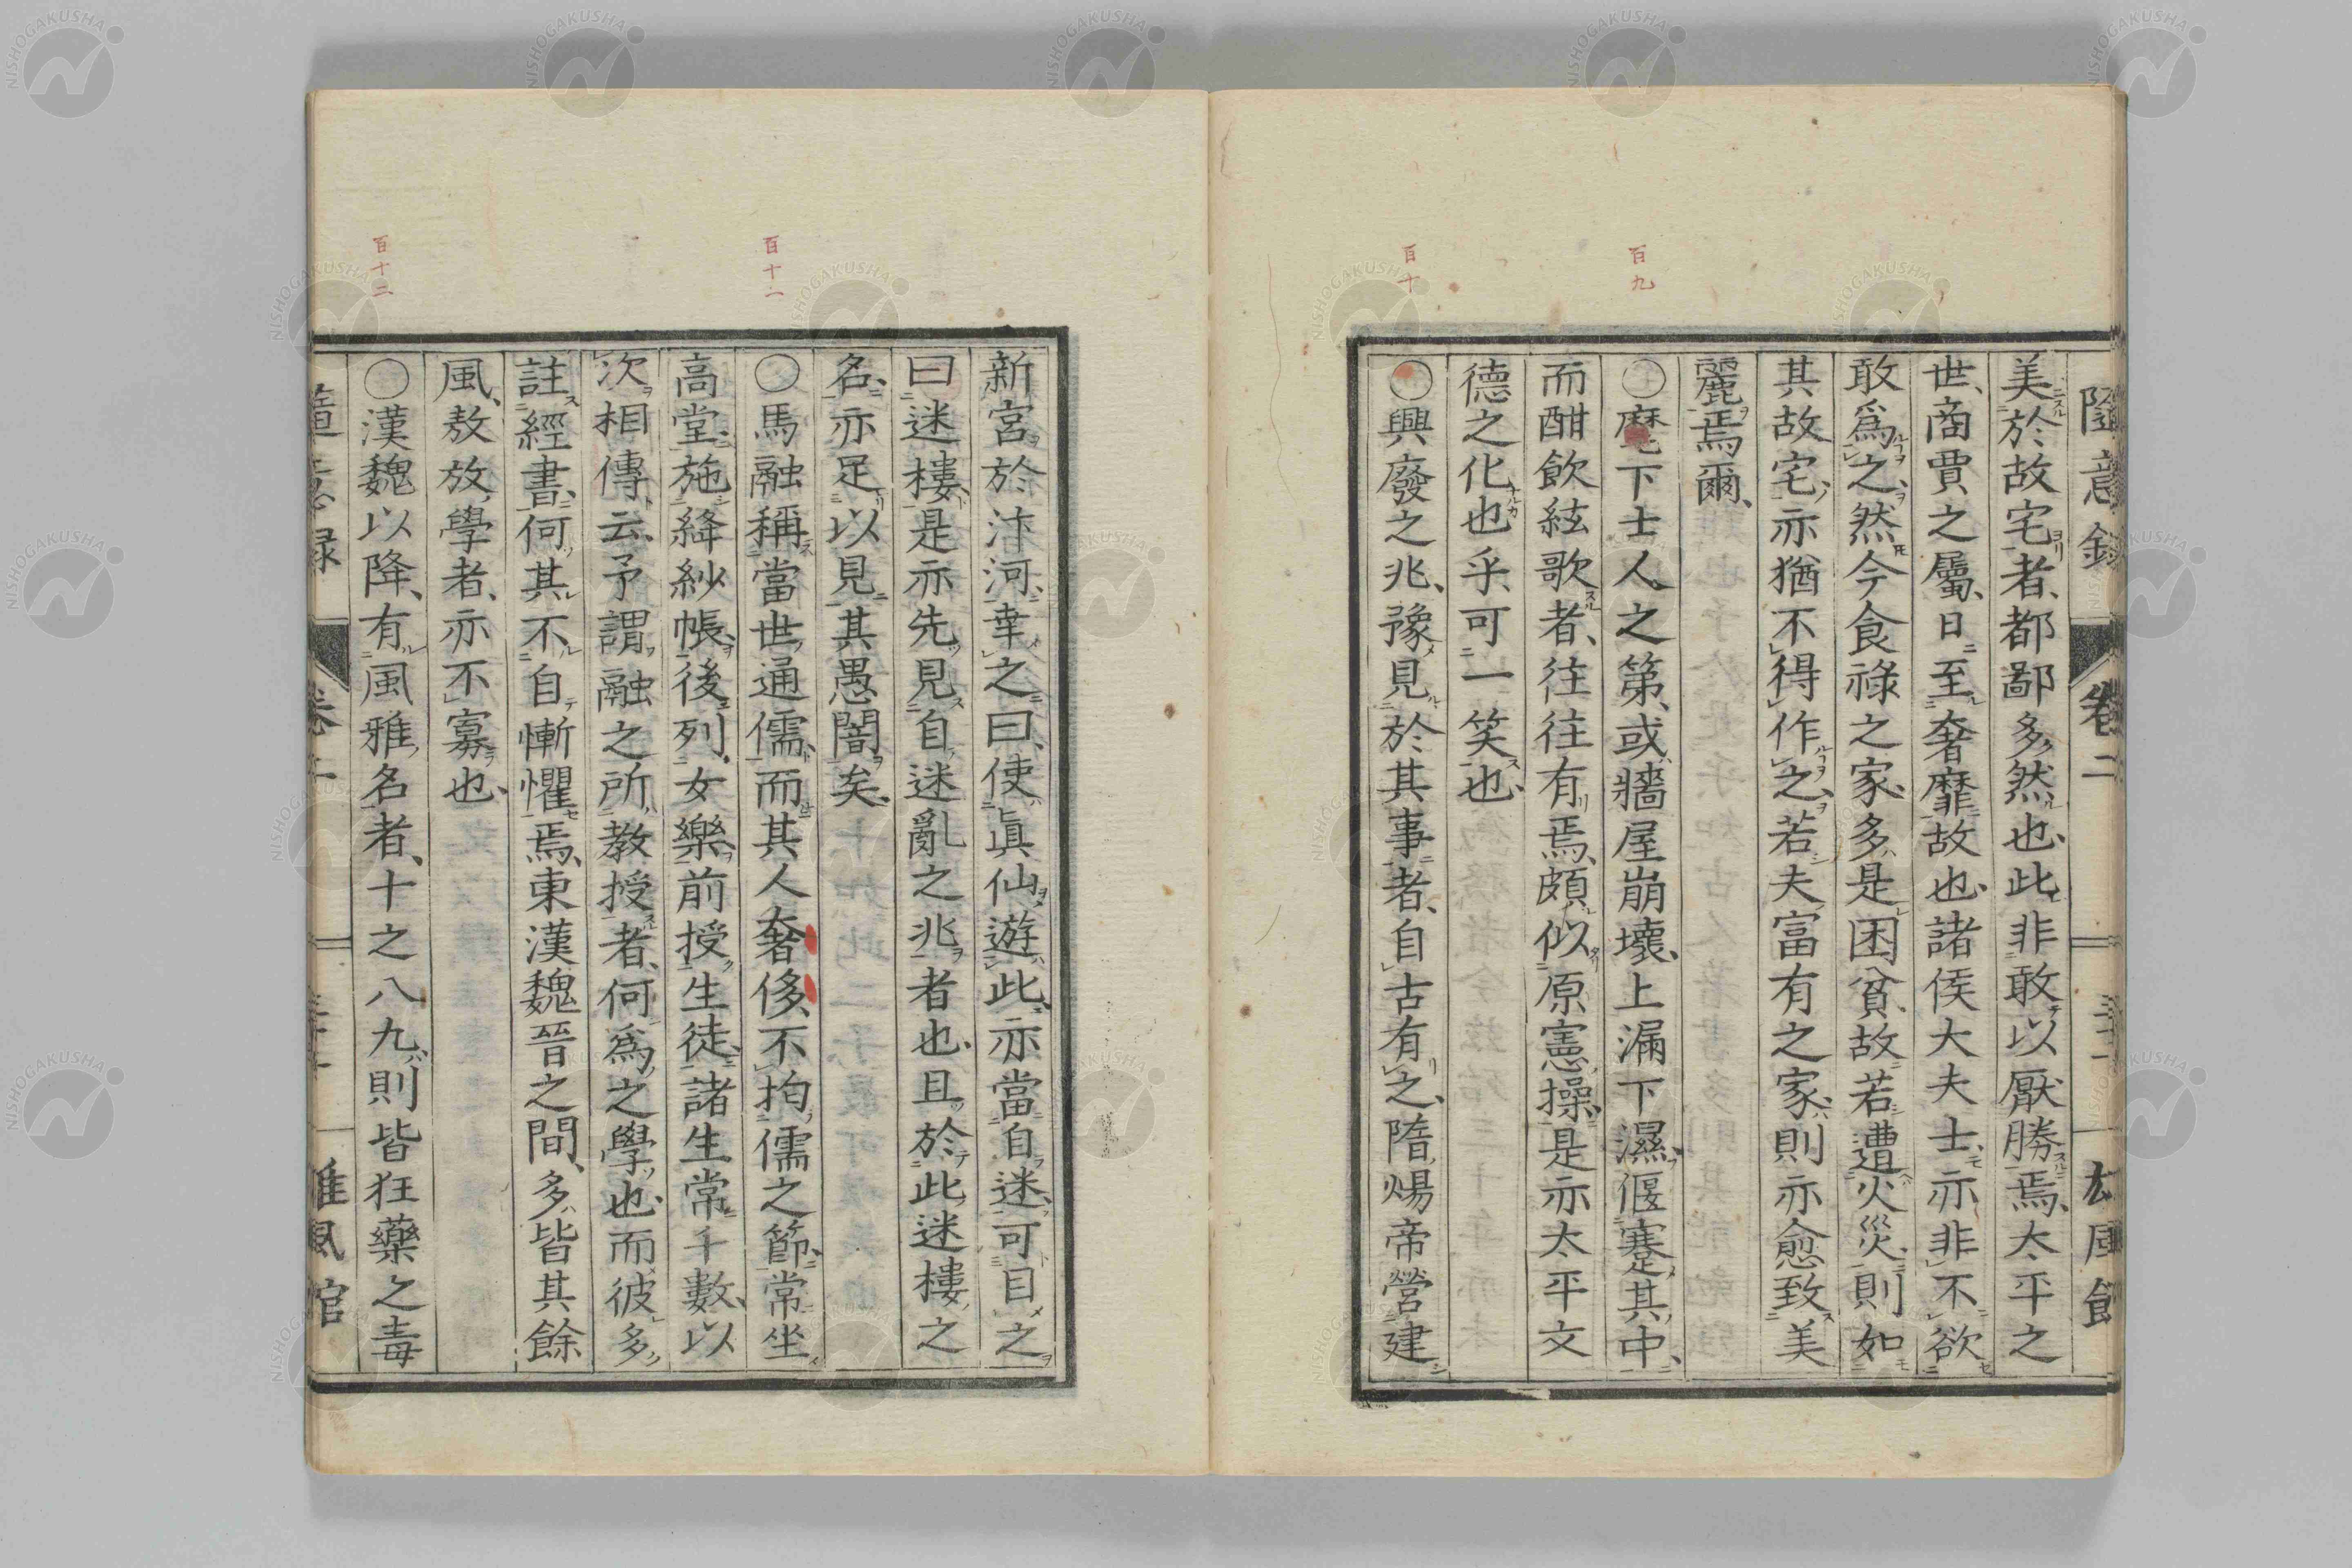 隨意錄 卷二
美於故宅者、都鄙多然也、此非敢以厭勝焉、太平之
世、商賈之屬、日至奢靡故也、諸侯大夫士、亦非不欲
敢爲之、然今食祿之家、多是困貧、故若遭火災、則如
其故宅、亦猶不得作之、若夫富有之家、則亦愈致美
麗焉爾、
百九
〇麾下士人之第、或牆屋崩壞、上漏下濕、偃蹇其中、
而酣飲絃歌者、往往有焉、頗似原憲操、是亦太平文
德之化也乎、可一笑也、
百十
〇興廢之兆、豫見於其事者、自古有之、隋煬帝營建
新宮於汴河、幸之曰、使眞仙遊此、亦當自迷、可目之
曰迷樓、是亦先見自迷亂之兆者也、且於此迷樓之
名、亦足以見其愚闇矣、
百十一
〇馬融稱當世通儒、而其人奢侈、不拘儒之節、常坐
高堂、施絳紗帳、後列女樂、前授生徒、諸生常千數、以
次相傳云、予謂融之所教授者、何爲之學也、而彼多
註經書、何其不自慚懼焉、東漢魏晉之間、多皆其餘
風、敖放學者、亦不寡也、
百十二
〇漢魏以降、有風雅名者、十之八九、則皆狂藥之毒
卷二